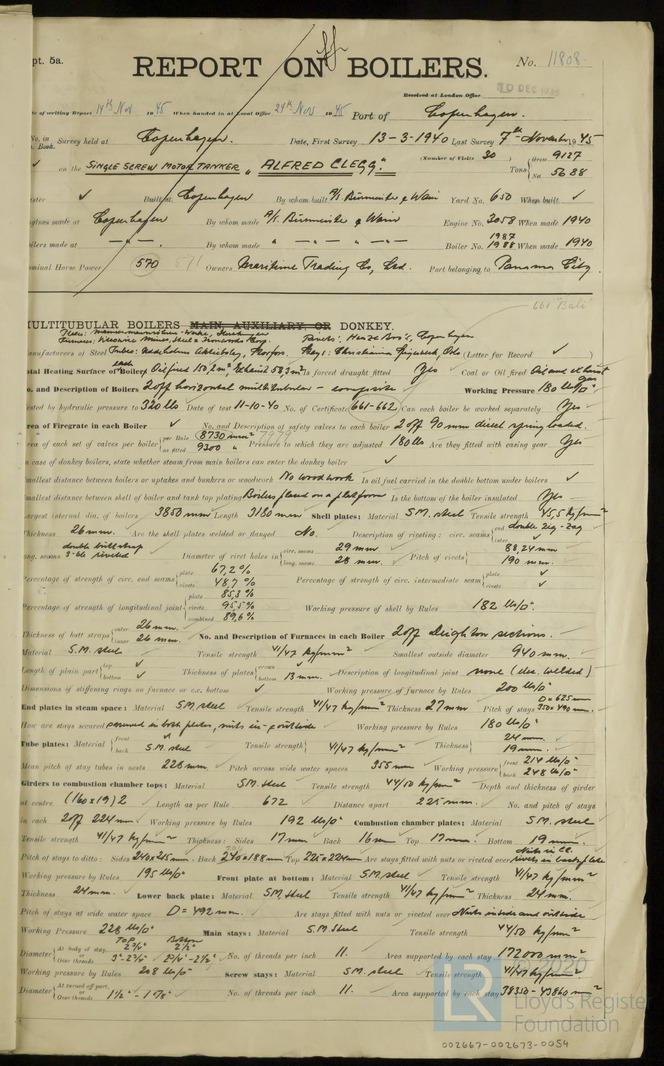 pt. 5a.
REPORT ON BOILERS.
No. 11808
Received at London Office
10 DEC 1945
te of writing Report 14th Nov 1945 When handed in at Local Office 24th Nov 1945 Port of Copenhagen.
No. in Survey held at Copenhagen. Date, First Survey 13-3-1940 Last Survey 7th November 1945
Book. (Number of Visits 30)
on the SINGLE SCREW MOTOR TANKER "ALFRED CLEGG." Tons Gross 9127 Net 5688
Built at Copenhagen By whom built A/S Burmeister & Wain Yard No. 650 When built
gines made at Copenhagen By whom made A/S Burmeister & Wain Engine No. 3058 When made 1940
ilers made at — " — By whom made " — " — " — Boiler No. 1987 1988 When made 1940
minal Horse Power 570 Owners Maritime Trading Co, Ltd. Port belonging to Panama City.
661 "Bali"
MULTITUBULAR BOILERS MAIN, AUXILIARY, OR DONKEY.
anufacturers of Steel (Letter for Record)
otal Heating Surface of Boilers each Oil fired 150,2 m² Exhaust 58,3 m² Is forced draught fitted Yes Coal or Oil fired Oil and exhaust gas
o. and Description of Boilers 2 off horizontal multitubular - composite Working Pressure 180 lbs/□"
ested by hydraulic pressure to 320 lbs Date of test 11-10-40 No. of Certificate 661-662 Can each boiler be worked separately Yes
rea of Firegrate in each Boiler No. and Description of safety valves to each boiler 2 off 90 mm direct spring loaded.
rea of each set of valves per boiler per Rule 8730 mm² as fitted 9300 " Pressure to which they are adjusted 180 lbs Are they fitted with easing gear Yes
n case of donkey boilers, state whether steam from main boilers can enter the donkey boiler
mallest distance between boilers or uptakes and bunkers or woodwork No woodwork Is oil fuel carried in the double bottom under boilers
mallest distance between shell of boiler and tank top plating Boilers placed on a platform Is the bottom of the boiler insulated Yes
argest internal dia. of boilers 3850 mm Length 3180 mm Shell plates: Material S.M. steel Tensile strength 45,5 kg/mm²
Thickness 26 mm. Are the shell plates welded or flanged No. Description of riveting: circ. seams end double zig-zag inter.
ong. seams double butt strap 3-66 riveted Diameter of rivet holes in circ. seams 29 mm long. seams 28 mm Pitch of rivets 88,24 mm 190 mm
Percentage of strength of circ. end seams plate 67,2 % rivets 48,7 % Percentage of strength of circ. intermediate seam plate rivets
Percentage of strength of longitudinal joint plate 85,3 % rivets 95,5 % combined 89,6 % Working pressure of shell by Rules 182 lbs/□"
Thickness of butt straps outer 26 mm. inner 26 mm. No. and Description of Furnaces in each Boiler 2 off Deighton sections.
Material S.M. steel Tensile strength 41/47 kg/mm² Smallest outside diameter 940 mm.
Length of plain part top bottom Thickness of plates crown bottom 13 mm. Description of longitudinal joint none (elec. welded)
Dimensions of stiffening rings on furnace or c.c. bottom Working pressure of furnace by Rules 200 lbs/□"
End plates in steam space: Material S.M. steel Tensile strength 41/47 kg/mm² Thickness 27 mm Pitch of stays D=625 mm 350x490 mm.
How are stays secured screwed in both plates, nuts in- & outside Working pressure by Rules 180 lbs/□"
Tube plates: Material front back S.M. steel Tensile strength 41/47 kg/mm² Thickness 24 mm 19 mm.
Mean pitch of stay tubes in nests 228 mm Pitch across wide water spaces 355 mm Working pressure front 214 lbs/□" back 248 lbs/□"
Girders to combustion chamber tops: Material S.M. steel Tensile strength 44/50 kg/mm² Depth and thickness of girder
at centre (160x19)2 Length as per Rule 672 Distance apart 225 mm. No. and pitch of stays
in each 2 off 224 mm Working pressure by Rules 192 lbs/□" Combustion chamber plates: Material S.M. steel
Tensile strength 41/47 kg/mm² Thickness: Sides 17 mm Back 16 mm Top 17 mm Bottom 19 mm.
Pitch of stays to ditto: Sides 240x245 mm. Back 240x188 mm Top 225x224 mm Are stays fitted with nuts or riveted over
Working pressure by Rules 195 lbs/□" Front plate at bottom: Material S.M. steel Tensile strength 41/47 kg/mm²
Thickness 24 mm. Lower back plate: Material S.M. steel Tensile strength 41/47 kg/mm² Thickness 24 mm.
Pitch of stays at wide water space D=492 mm. Are stays fitted with nuts or riveted over Nuts inside and outside
Working Pressure 228 lbs/□" Main stays: Material S.M. Steel Tensile strength 44/50 kg/mm²
Diameter At body of stay, or Over threads No. of threads per inch 11. Area supported by each stay 172000 mm²
Working pressure by Rules 208 lbs/□" Screw stays: Material S.M. steel Tensile strength 41/47 kg/mm²
Diameter At turned off part, or Over threads 1½" - 1⅞" No. of threads per inch 11. Area supported by each stay 38350-43860 mm²
© 2020
LR
Lloyd's Register
Foundation
002667-002673-0054